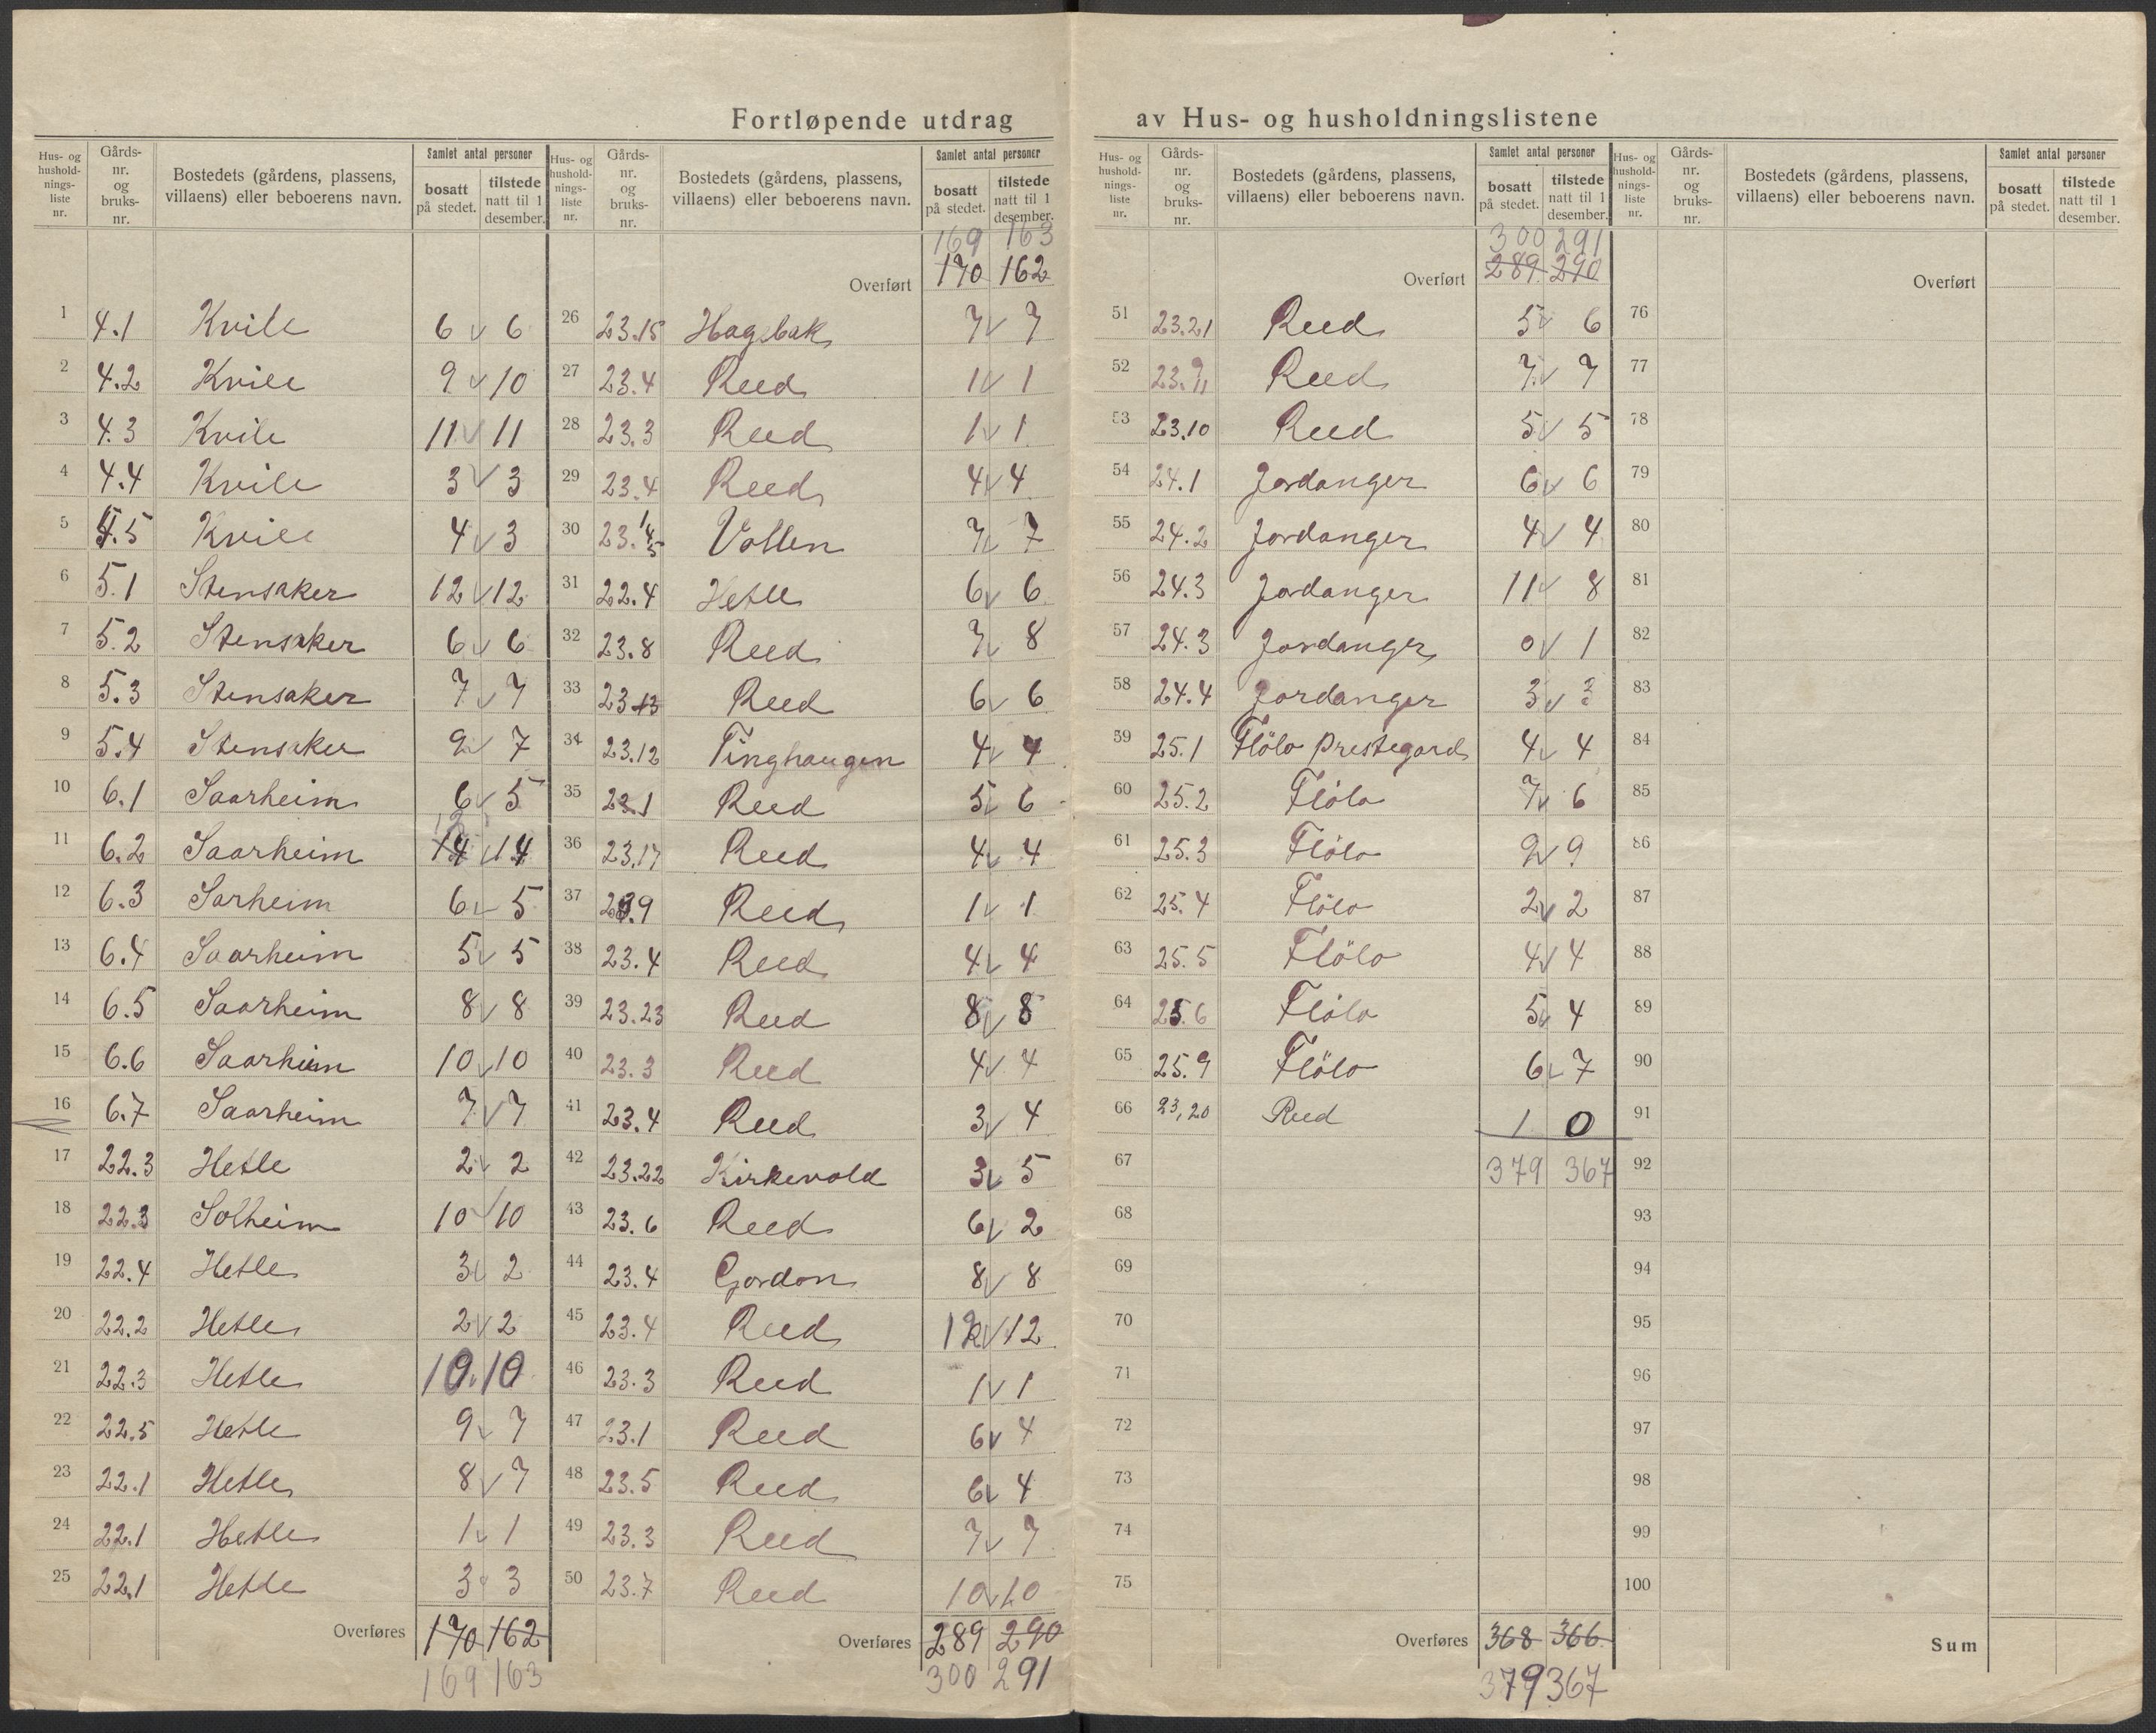 Fortløpende utdrag av Hus- og husholdningslistene
Hus- og husholdnings-liste nr. Gårds-nr. og bruks-nr. Bostedets (gårdens, plassens, villaens) eller beboerens navn. Samlet antal personer bosatt på stedet. tilstede natt til 1 desember.
1 4.1 Kvile 6 v 6
2 4.2 Kvile 9 v 10
3 4.3 Kvile 11 v 11
4 4.4 Kvile 3 v 3
5 4.5 Kvile 4 v 3
6 5.1 Stensaker 12 v 12
7 5.2 Stensaker 6 v 6
8 5.3 Stensaker 7 v 7
9 5.4 Stensaker 9 v 7
10 6.1 Saarheim 6 v 5
11 6.2 Saarheim 14 v 14
12 6.3 Sarheim 6 v 5
13 6.4 Saarheim 5 v 5
14 6.5 Saarheim 8 v 8
15 6.6 Saarheim 10 v 10
16 6.7 Saarheim 7 v 7
17 22.3 Hetle 2 v 2
18 22.3 Solheim 10 v 10
19 22.4 Hetle 3 v 2
20 22.2 Hetle 2 v 2
21 22.3 Hetle 10 v 10
22 22.5 Hetle 9 v 7
23 22.1 Hetle 8 v 7
24 22.1 Hetle 1 v 1
25 22.1 Hetle 3 v 3
Overføres 170 162
169 163
Hus- og husholdnings-liste nr. Gårds-nr. og bruks-nr. Bostedets (gårdens, plassens, villaens) eller beboerens navn. Samlet antal personer bosatt på stedet. tilstede natt til 1 desember.
169 163
Overført 170 162
26 23.15 Hagebak 7 v 7
27 23.4 Reed 1 v 1
28 23.3 Reed 1 v 1
29 23.4 Reed 4 v 4
30 23. Vollen 7 v 7
31 22.4 Hetle 6 v 6
32 23.8 Reed 7 v 8
33 23.13 Reed 6 v 6
34 23.12 Tinghaugen 4 v 4
35 Reed 5 v 6
36 23.17 Reed 4 v 4
37 Reed 1 v 1
38 23.4 Reed 4 v 4
39 23.23 Reed 8 v 8
40 23.3 Reed 4 v 4
41 23.4 Reed 3 v 4
42 23.22 Kirkevold 3 v 5
43 23.6 Reed 6 v 2
44 23.4 Gordon 8 v 8
45 23.4 Reed 12 v 12
46 23.3 Reed 1 v 1
47 23.1 Reed 6 v 4
48 23.5 Reed 6 v 4
49 23.3 Reed 7 v 7
50 23.7 Reed 10 v 10
Overføres 289 290
300 291
Hus- og husholdnings-liste nr. Gårds-nr. og bruks-nr. Bostedets (gårdens, plassens, villaens) eller beboerens navn. Samlet antal personer bosatt på stedet. tilstede natt til 1 desember.
300 291
Overført 289 290
51 23.21 Reed 5 v 6
52 Reed 7 v 7
53 23.10 Reed 5 v 5
54 24.1 Jordanger 6 v 6
55 24.2 Jordanger 4 v 4
56 24.3 Jordanger 11 v 8
57 24.3 Jordanger 0 v 1
58 24.4 Jordanger 3 v 3
59 25.1 Flölo prestegard 4 v 4
60 25.2 Flölo 7 v 6
61 25.3 Flölo 9 v 9
62 25.4 Flölo 2 v 2
63 25.5 Flölo 4 v 4
64 25.6 Flölo 5 v 4
65 25.9 Flölo 6 v 7
66 23,20 Reed 1 0
67 379 367
68
69
70
71
72
73
74
75
Overføres 368 366
379 367
Hus- og husholdnings-liste nr. Gårds-nr. og bruks-nr. Bostedets (gårdens, plassens, villaens) eller beboerens navn. Samlet antal personer bosatt på stedet. tilstede natt til 1 desember.
Overført
76
77
78
79
80
81
82
83
84
85
86
87
88
89
90
91
92
93
94
95
96
97
98
99
100
Sum